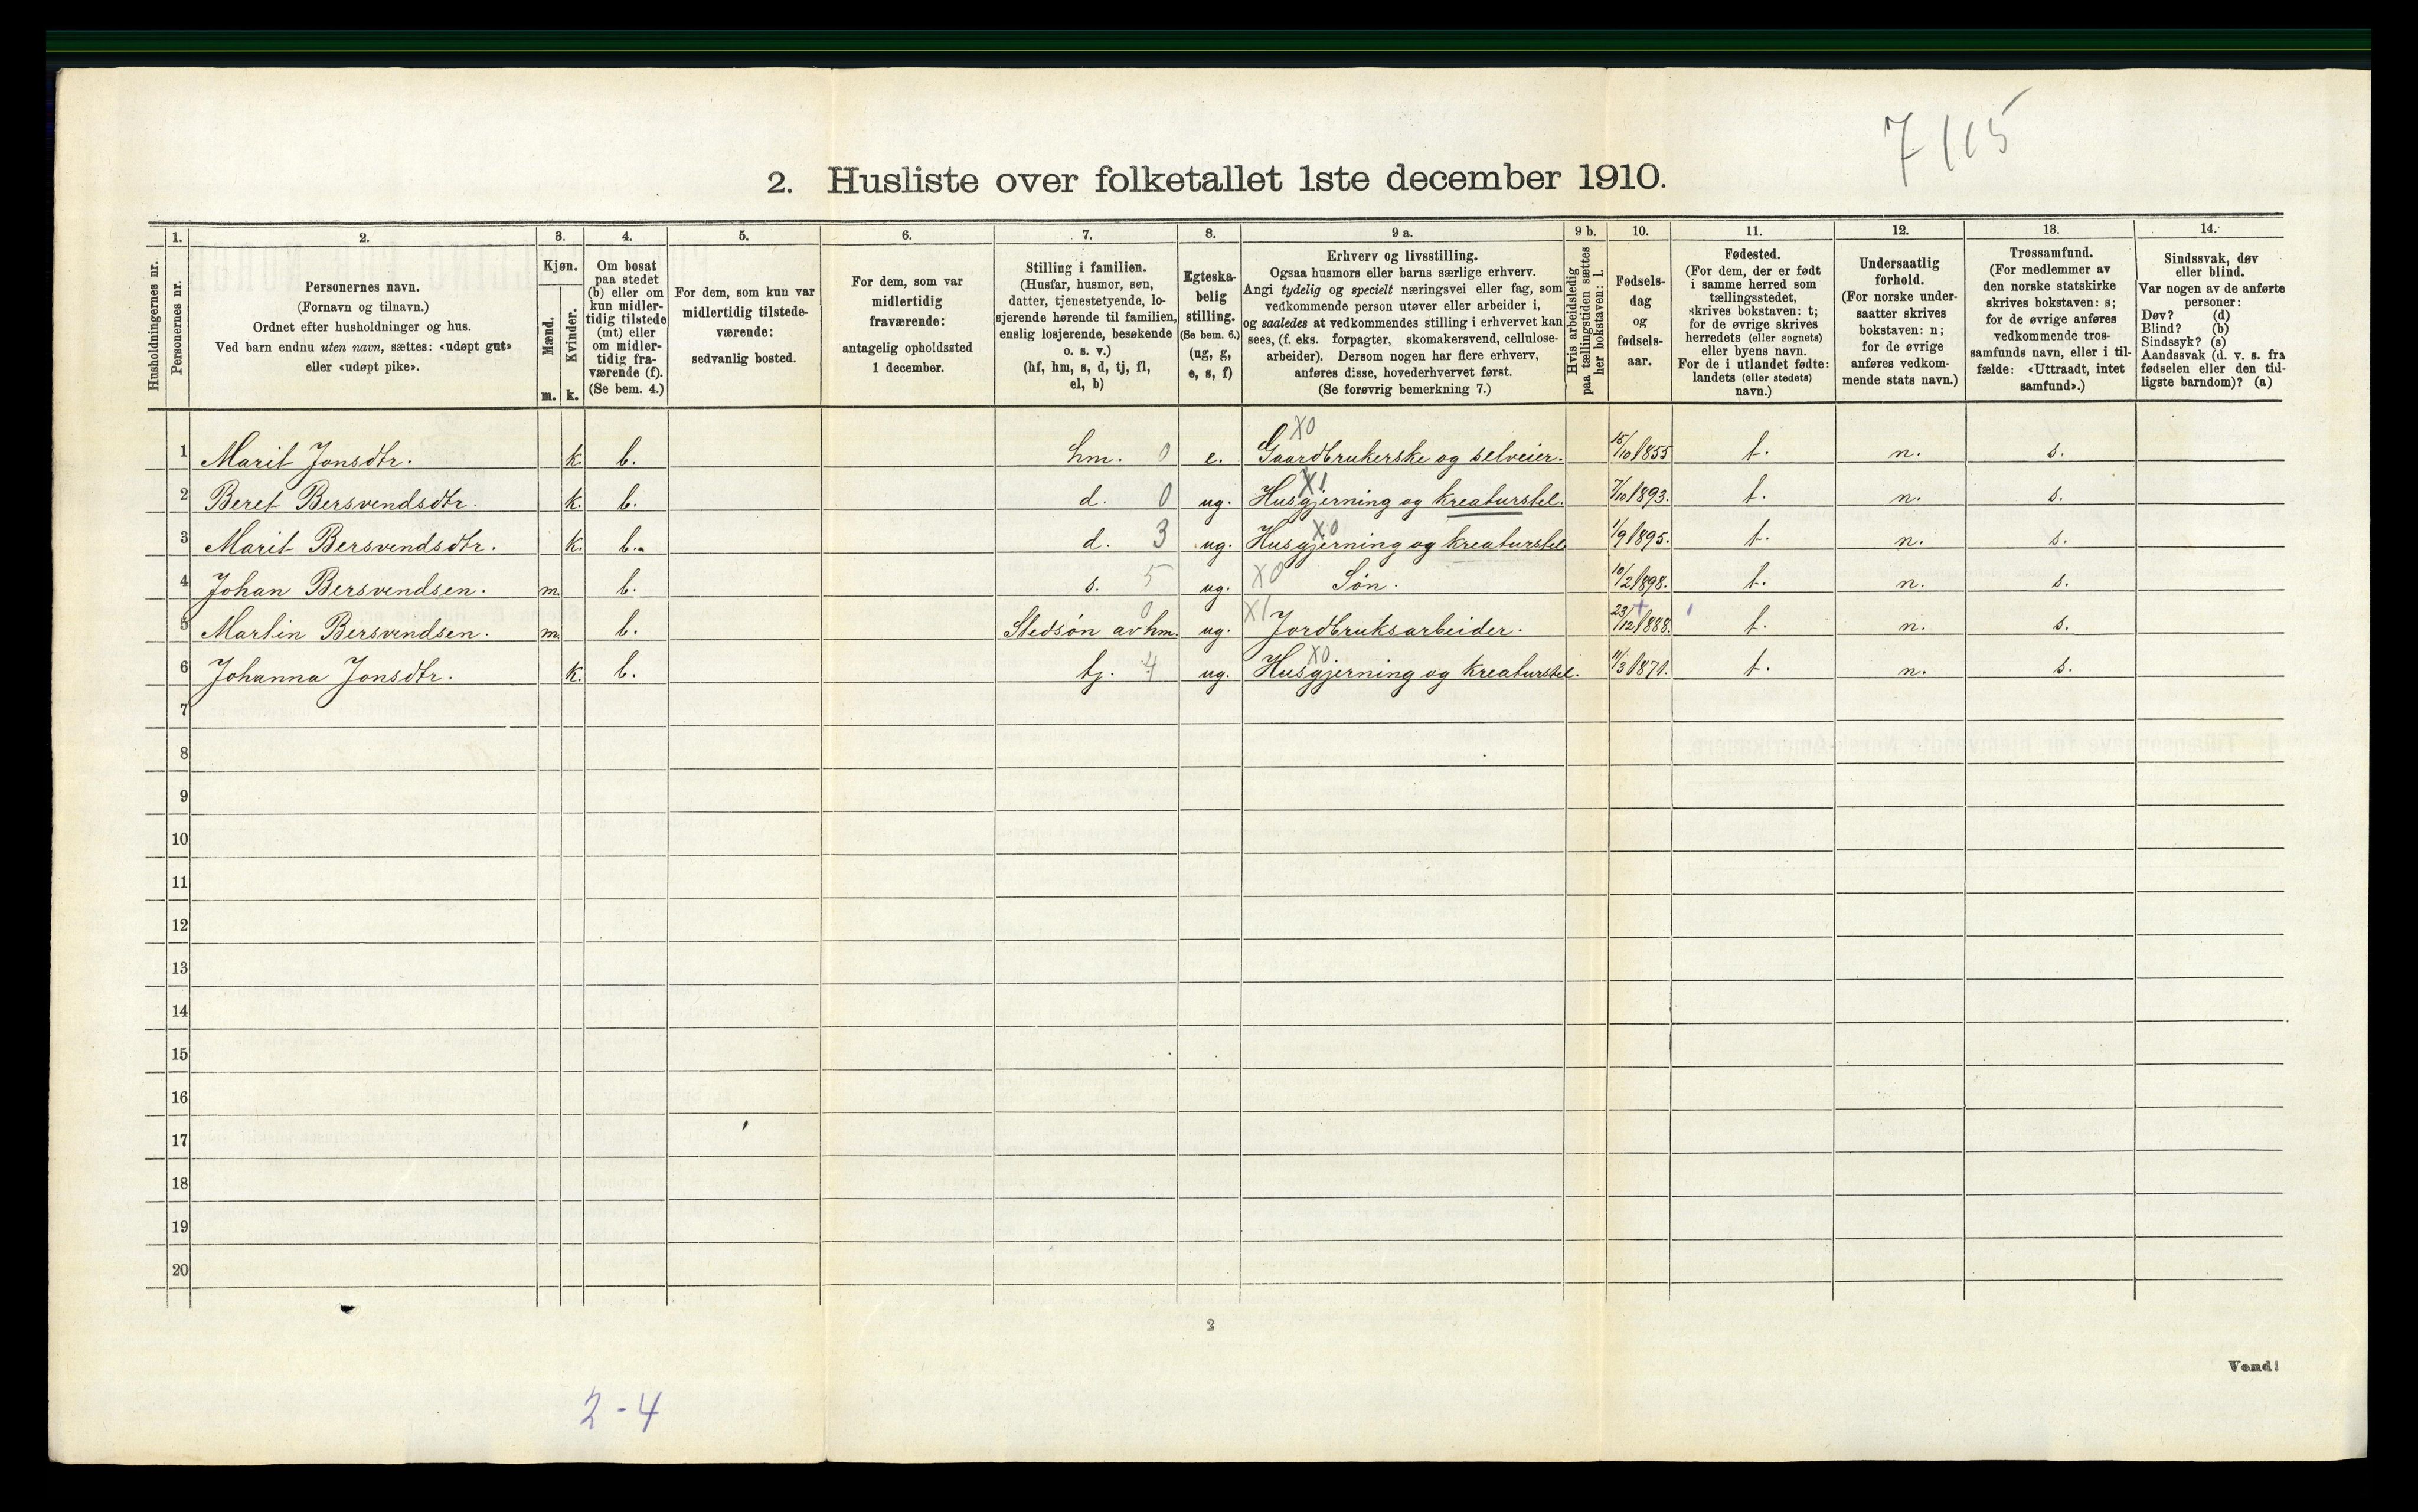 7 115
2. Husliste over folketallet 1ste december 1910.
Husholdningernes nr.
1.
Personernes nr.
2.
Personernes navn.
(Fornavn og tilnavn.)
Ordnet efter husholdninger og hus.
Ved barn endnu uten navn, sættes: «udøpt gut»
eller «udøpt pike».
3.
Kjøn.
Mænd.
Kvinder.
m. k.
4.
Om bosat
paa stedet
(b) eller om
kun midler-
tidig tilstede
(mt) eller
om midler-
tidig fra-
værende (f).
(Se bem. 4.)
5.
For dem, som kun var
midlertidig tilstede-
værende:
sedvanlig bosted.
6.
For dem, som var
midlertidig
fraværende:
antagelig opholdssted
1 december.
7.
Stilling i familien.
(Husfar, husmor, søn,
datter, tjenestetyende, lo-
sjerende hørende til familien,
enslig losjerende, besøkende
o. s. v.)
(hf, hm, s, d, tj, fl,
el, b)
8.
Egteska-
belig
stilling.
(Se bem. 6.)
(ug, g,
e, s, f)
9 a.
Erhverv og livsstilling.
Ogsaa husmors eller barns særlige erhverv.
Angi tydelig og specielt næringsvei eller fag, som
vedkommende person utøver eller arbeider i,
og saaledes at vedkommendes stilling i erhvervet kan
sees, (f. eks. forpagter, skomakersvend, cellulose-
arbeider). Dersom nogen har flere erhverv,
anføres disse, hovederhvervet først.
(Se forøvrig bemerkning 7.)
9 b.
Hvis arbeidsledig
paa tællingstiden sættes
her bokstaven: l.
10.
Fødsels-
dag
og
fødsels-
aar.
11.
Fødested.
(For dem, der er født
i samme herred som
tællingsstedet,
skrives bokstaven: t;
for de øvrige skrives
herredets (eller sognets)
eller byens navn.
For de i utlandet fødte:
landets (eller stedets)
navn.)
12.
Undersaatlig
forhold.
(For norske under-
saatter skrives
bokstaven: n;
for de øvrige
anføres vedkom-
mende stats navn.)
13.
Trossamfund.
(For medlemmer av
den norske statskirke
skrives bokstaven: s;
for de øvrige anføres
vedkommende tros-
samfunds navn, eller i til-
fælde: «Uttraadt, intet
samfund».)
14.
Sindssvak, døv
eller blind.
Var nogen av de anførte
personer:
Døv? (d)
Blind? (b)
Sindssyk? (s)
Aandssvak (d. v. s. fra
fødselen eller den tid-
ligste barndom)? (a)
X0
1 Marit Jonsdtr. k. b. hm. 0 e. Gaardbrukerske og selveier. 15/10 1855 t. n. s.
X1
2 Beret Bersvendsdtr. k. b. d. 0 ug. Husgjerning og kreaturstel. 7/10 1893. t. n. s.
X0
3 Marit Bersvendsdtr. k. b. d. 3 ug. Husgjerning og kreaturstel 1/9 1895. t. n. s.
4 Johan Bersvendsen. m. b. s. 5 ug. X0 Søn. 10/2 1898. t. n. s.
5 Martin Bersvendsen. m. b. Stedsøn av hm. 0 ug. X1 Jordbruksarbeider. 23/12 1888. t. n. s.
X0
6 Johanna Jonsdtr. k. b. tj. 4 ug. Husgjerning og kreaturstel. 11/3 1871. t. n. s.
7
8
9
10
11
12
13
14
15
16
17
18
19
20
2
Vend!
2-4